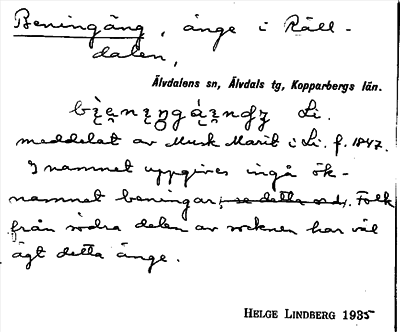 Beningäng, änge i Räll-
dalen,
Älvdalens sn, Älvdals tg, Kopparbergs län.
Li.
meddelat av Musk Marit i Li. f. 1847.
I namnet uppgives ingå ök-
namnet beningar, se detta ord. Folk
från södra delen av socknen har väl
ägt detta änge.
HELGE LINDBERG 1935